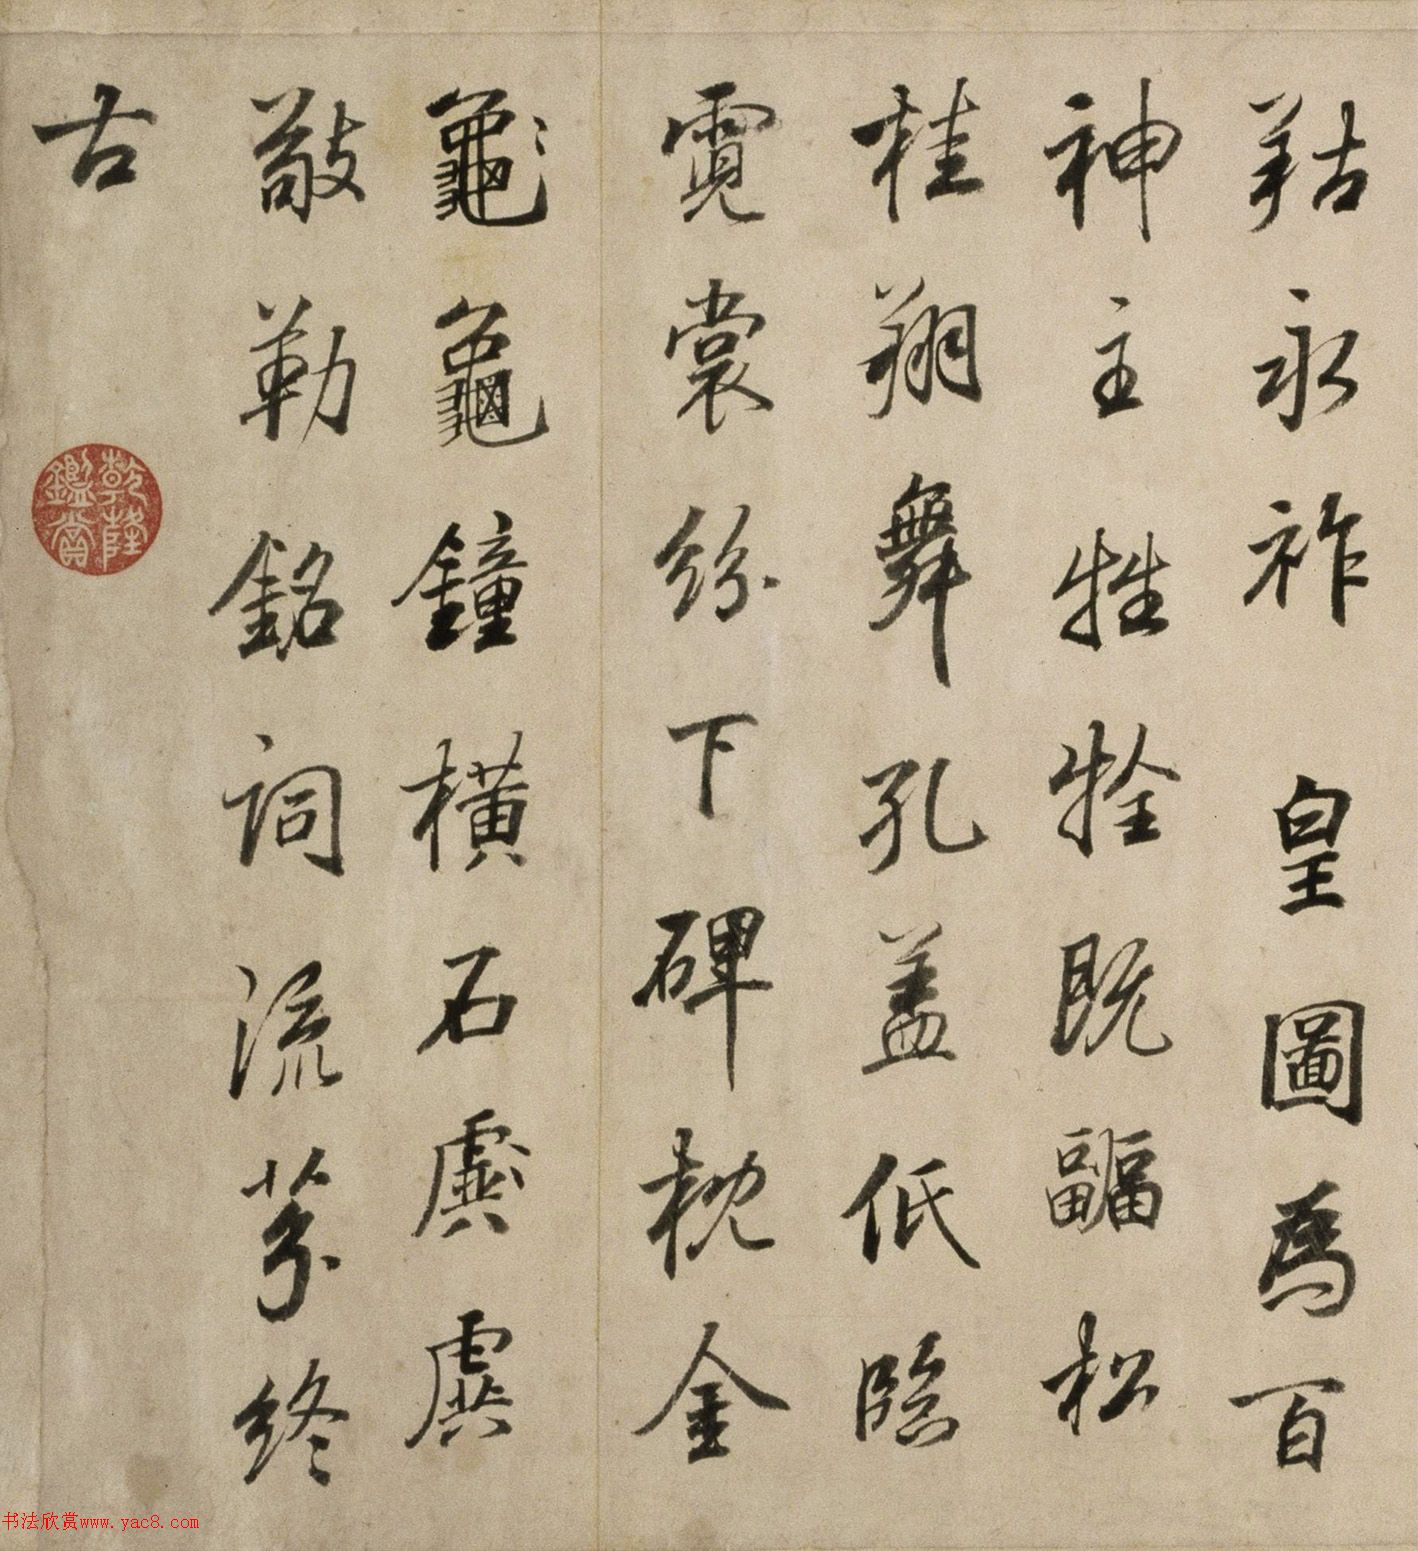 永祚 皇圖為百
神主牲牷既疈松
桂翔舞孔盖低臨
霓裳紛下碑枕金
龜龜鐘橫石虡虡
敢勒銘詞流芬終
古
乾隆鑑賞
书法欣赏www.yac8.com